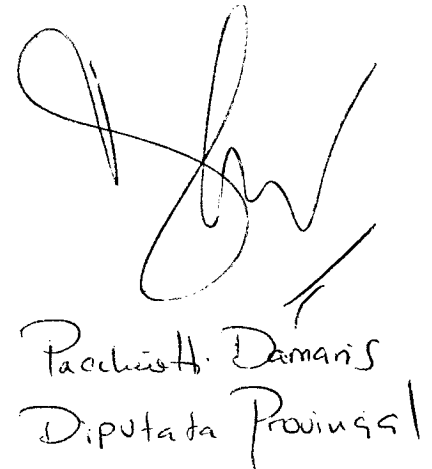 Pacchiotti Damaris
Diputada Provincial